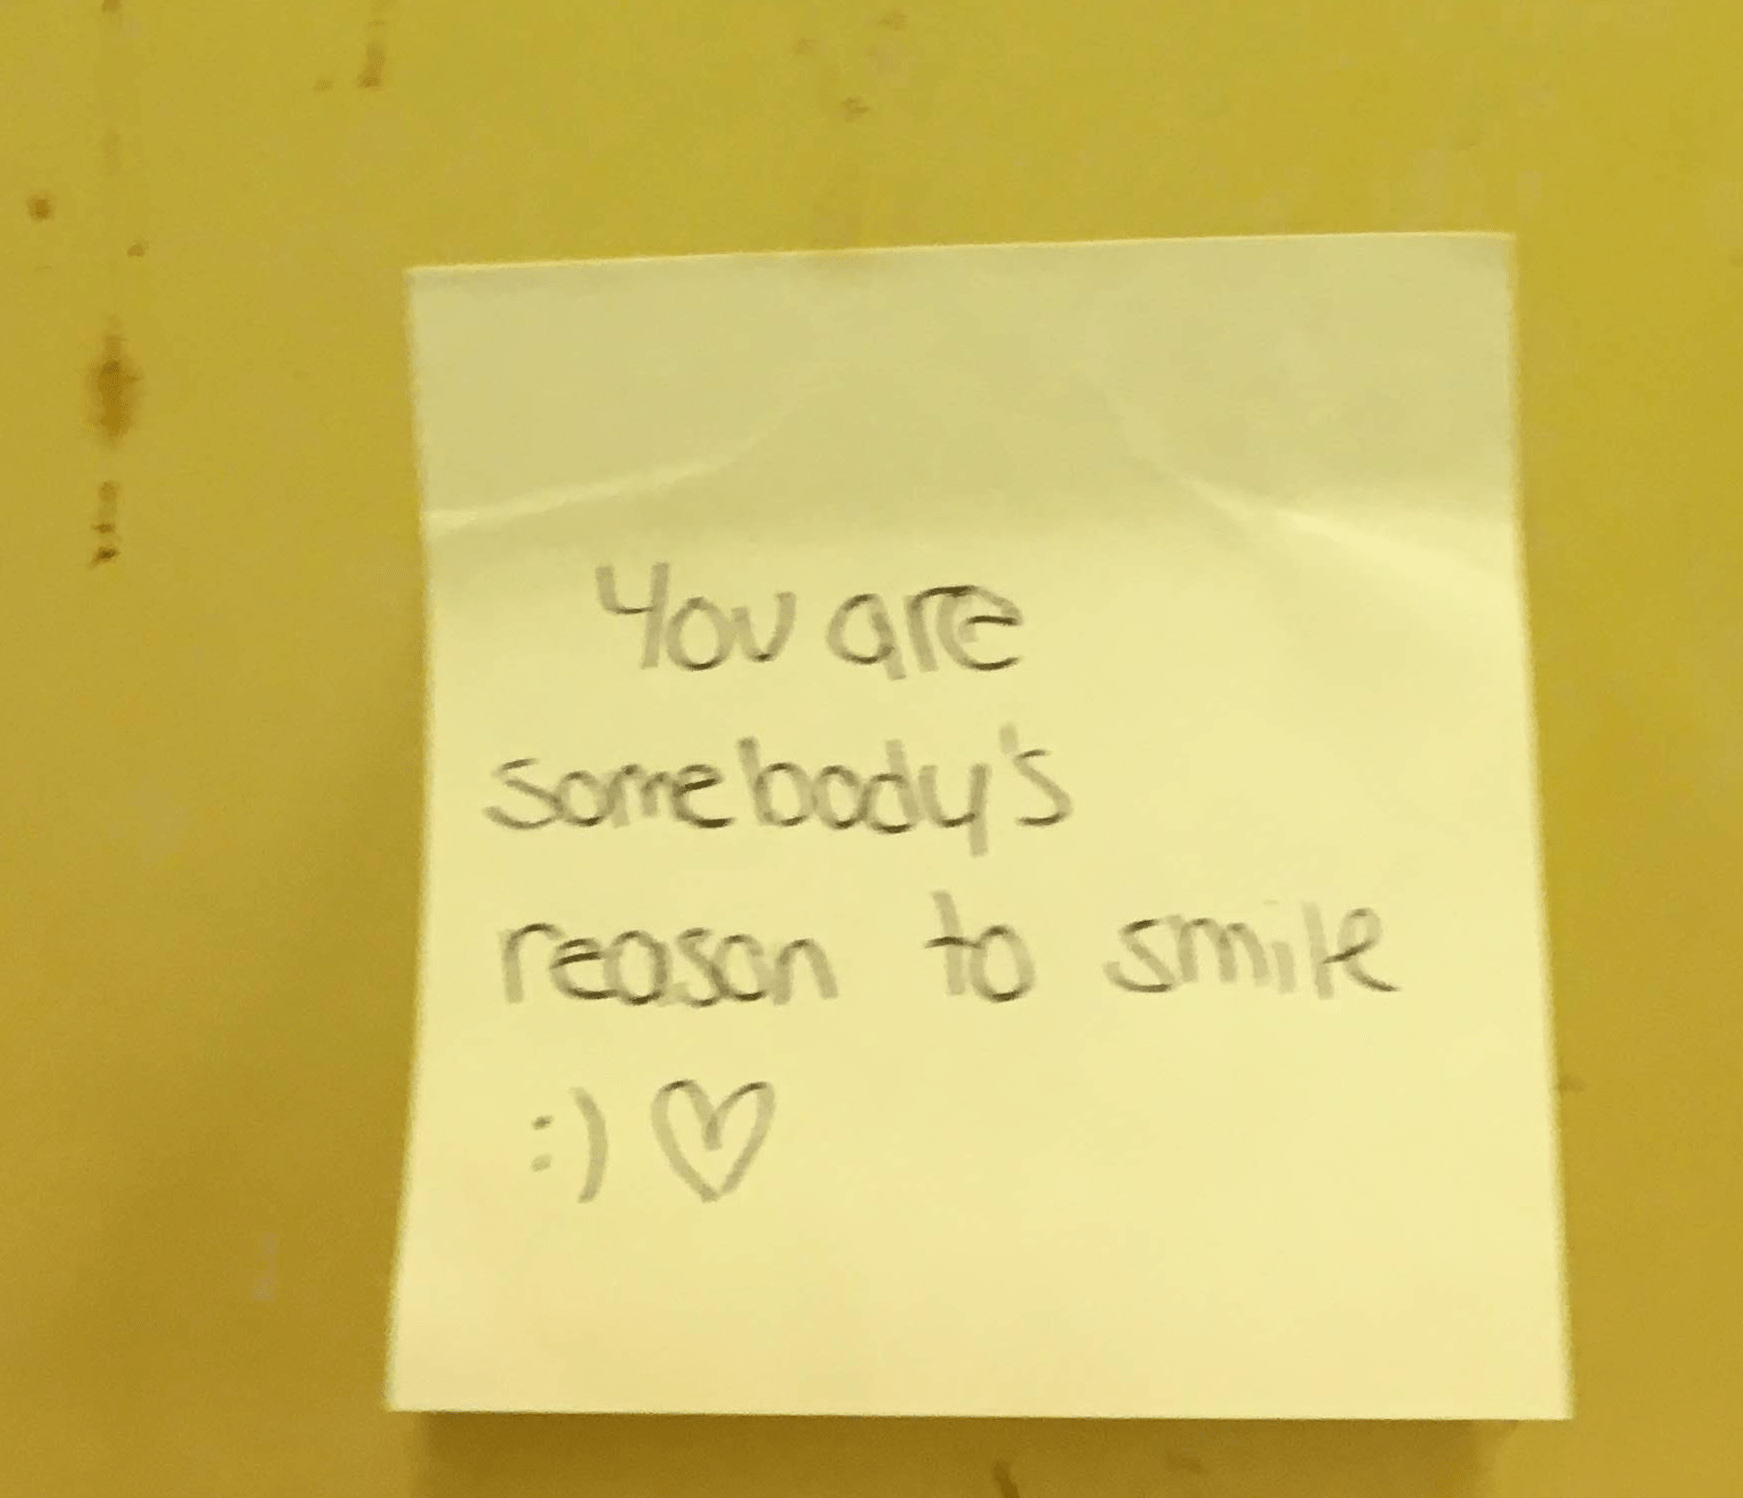 You are
somebody's
reason to smile
:) ♡